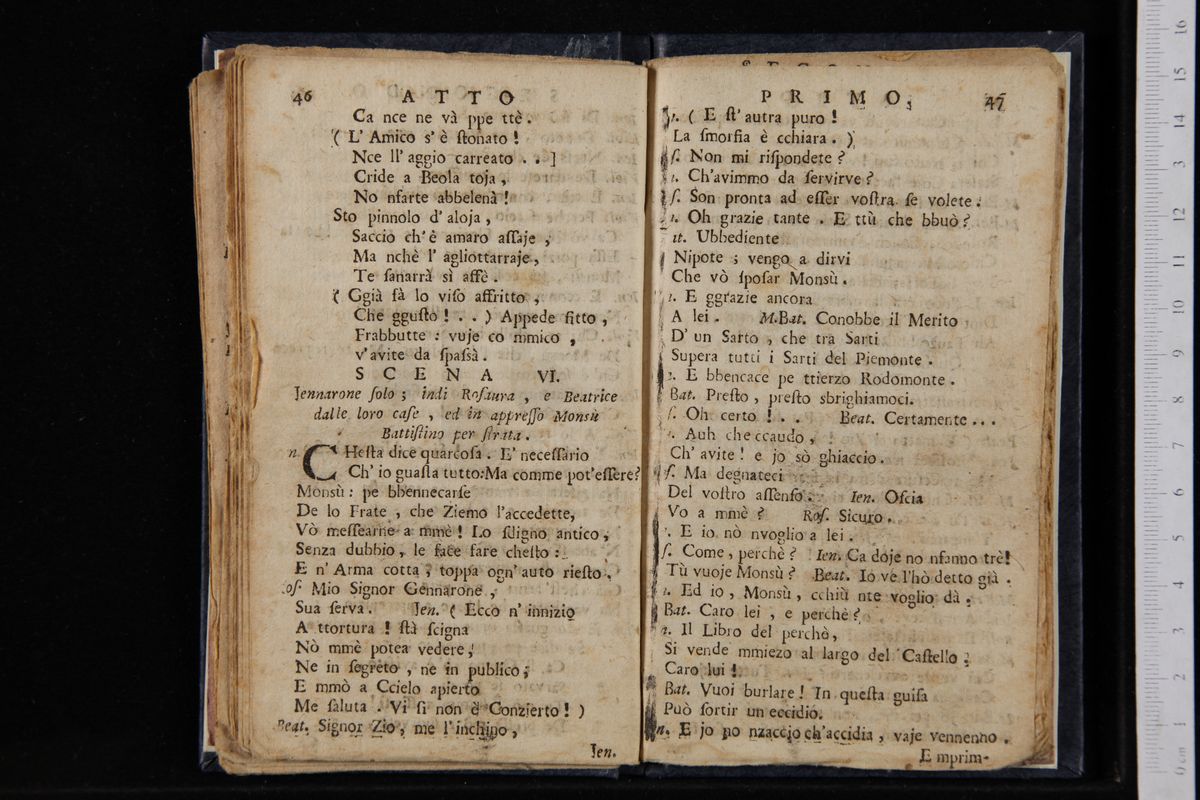 46 ATTO
Ca nce ne và ppe ttè.
( L' Amico s' è ſtonato !
Nce ll' aggio carreato . . ]
Cride a Beola toja,
No nfarte abbelenà !
Sto pinnolo d' aloja,
Saccio ch' è amaro aſſaje,
Ma nchè l' agliottarraje,
Te ſanarrà sì affè.
( Ggià fà lo viſo affritto,
Che gguſto ! . . ) Appede fitto,
Frabbutte : vuje co mmico,
v'avite da ſpaſsà.
SCENA VI.
Jennarone ſolo ; indi Roſaura, e Beatrice
dalle loro caſe, ed in appreſſo Monsù
Battiſtino per ſtrata.
n. CHeſta dice quarcoſa. E' neceſſario
Ch' io guaſta tutto: Ma comme pot'eſſere?
Monsù : pe bbennecarſe
De lo Frate, che Ziemo l'accedette,
Vò meſſearne a mmè ! Lo ſdigno antico,
Senza dubbio, le face fare cheſto :
E n' Arma cotta, toppa ogn' auto rieſto.
oſ. Mio Signor Gennarone,
Sua ſerva. Jen. ( Ecco n' innizio
A ttortura ! ſtà ſcigna
Nò mmè potea vedere,
Ne in ſegreto, ne in publico;
E mmò a Ccielo apierto
Me ſaluta. Vi ſi non è Conzierto ! )
Beat. Signor Zio, me l'inchino,
Jen.
PRIMO, 47
1. ( E ſt' autra puro !
La ſmorfia è cchiara. )
ſ. Non mi riſpondete ?
1. Ch'avimmo da ſervirve ?
ſ. Son pronta ad eſſer voſtra ſe volete.
1. Oh grazie tante. E ttù che bbuò ?
it. Ubbediente
Nipote ; vengo a dirvi
Che vò ſpoſar Monsù.
1. E ggrazie ancora
A lei. M.Bat. Conobbe il Merito
D' un Sarto, che tra Sarti
Supera tutti i Sarti del Piemonte.
1. E bbencace pe ttierzo Rodomonte.
Bat. Preſto, preſto sbrighiamoci.
ſ. Oh certo ! . . Beat. Certamente ...
. Auh che ccaudo,
Ch' avite ! e jo sò ghiaccio.
ſ. Ma degnateci
Del voſtro aſſenſo. Ien. Oſcia
Vo a mmè ? Roſ. Sicuro.
. E io nò nvoglio a lei.
ſ. Come, perchè ? Ien. Ca doje no nfanno trè!
Tù vuoje Monsù ? Beat. Io ve l'hò detto già.
1. Ed io, Monsù, cchiù nte voglio dà.
Bat. Caro lei, e perchè ?
2. Il Libro del perchè,
Si vende mmiezo al largo del Caſtello.
Caro lui !
Bat. Vuoi burlare ! In queſta guiſa
Può ſortir un eccidio.
n. E jo no nzaccio ch'accidia, vaje vennenno.
E mprim-